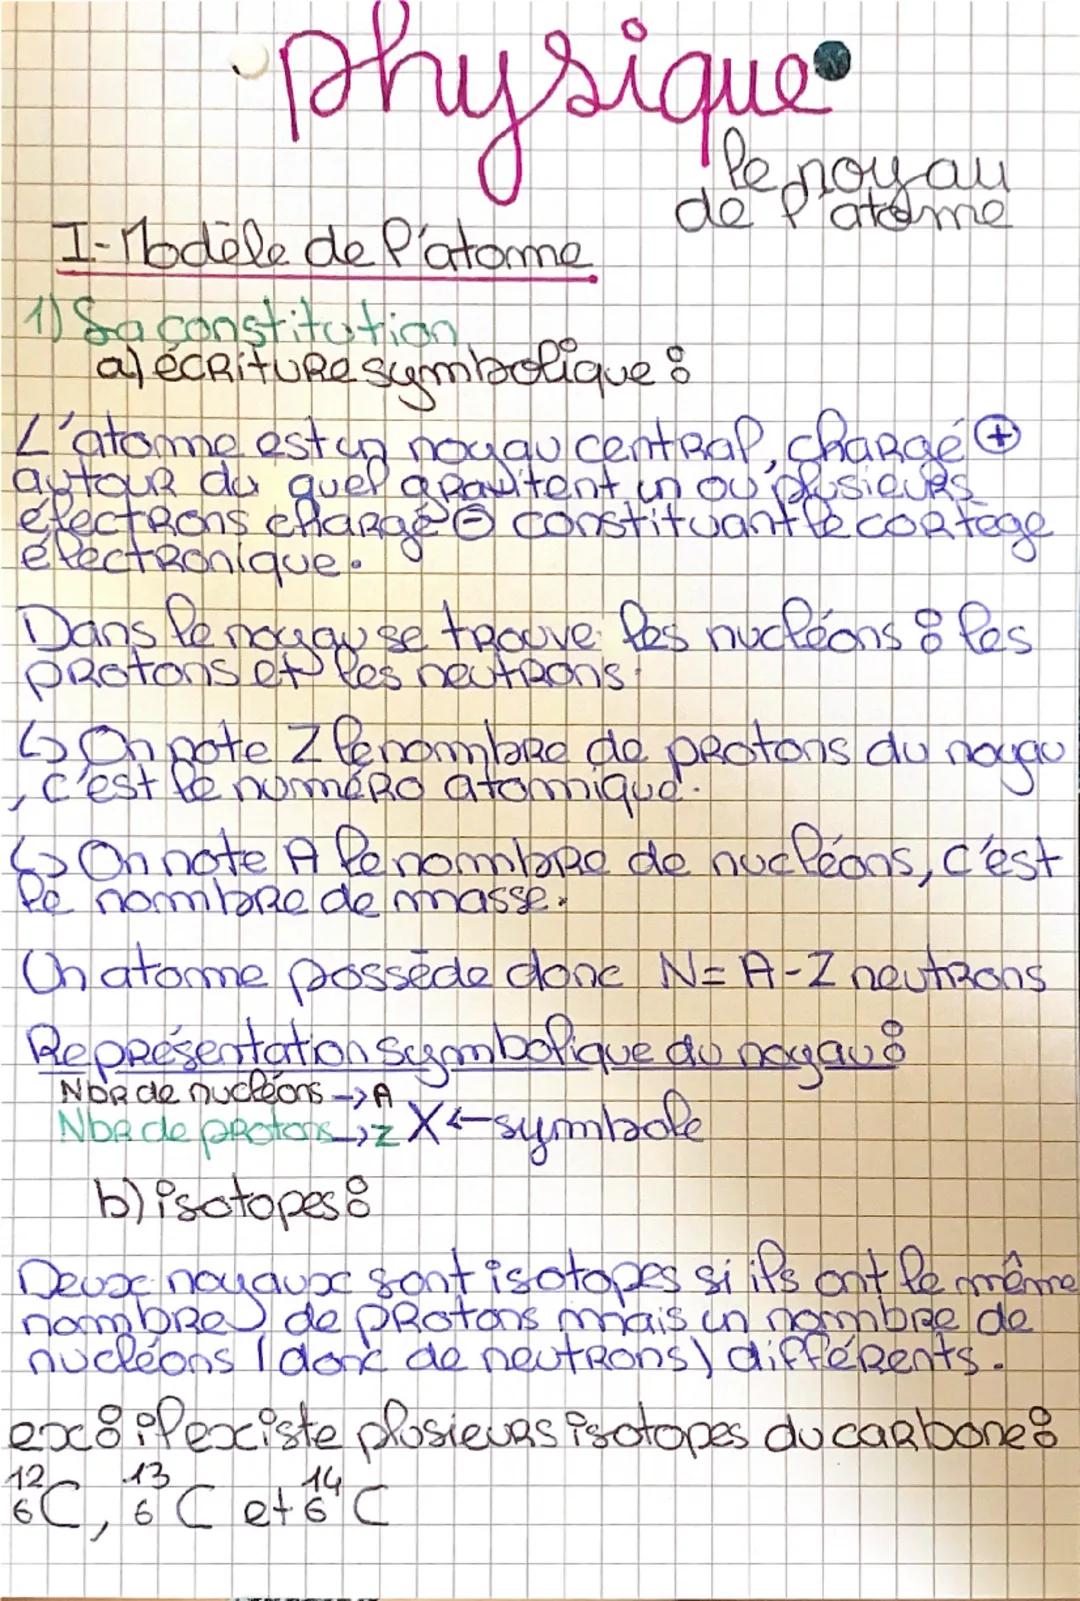 physique
le noyau
de l'atome
I-Modèle de l'atome
1) Sa constitution
a) écriture symbolique :
L'atome est un noyau central, chargé ⊕
autour du quel gravitent un ou plusieurs
électrons chargé ⊖ constituant le cortège
électronique.
Dans le noyau se trouve les nucléons : les
protons et les neutrons.
↳ On note Z le nombre de protons du noyau
, c'est le numéro atomique.
↳ On note A le nombre de nucléons, c'est
le nombre de masse.
Un atome possède donc N= A-Z neutrons
Représentation symbolique du noyau :
Nbr de nucléons → A
Nbr de protons → Z X ← symbole
b) isotopes :
Deux noyaux sont isotopes si ils ont le même
nombre de protons mais un nombre de
nucléons (donc de neutrons) différents.
ex : il existe plusieurs isotopes du carbone :
¹²₆C, ¹³₆C et ¹⁴₆C